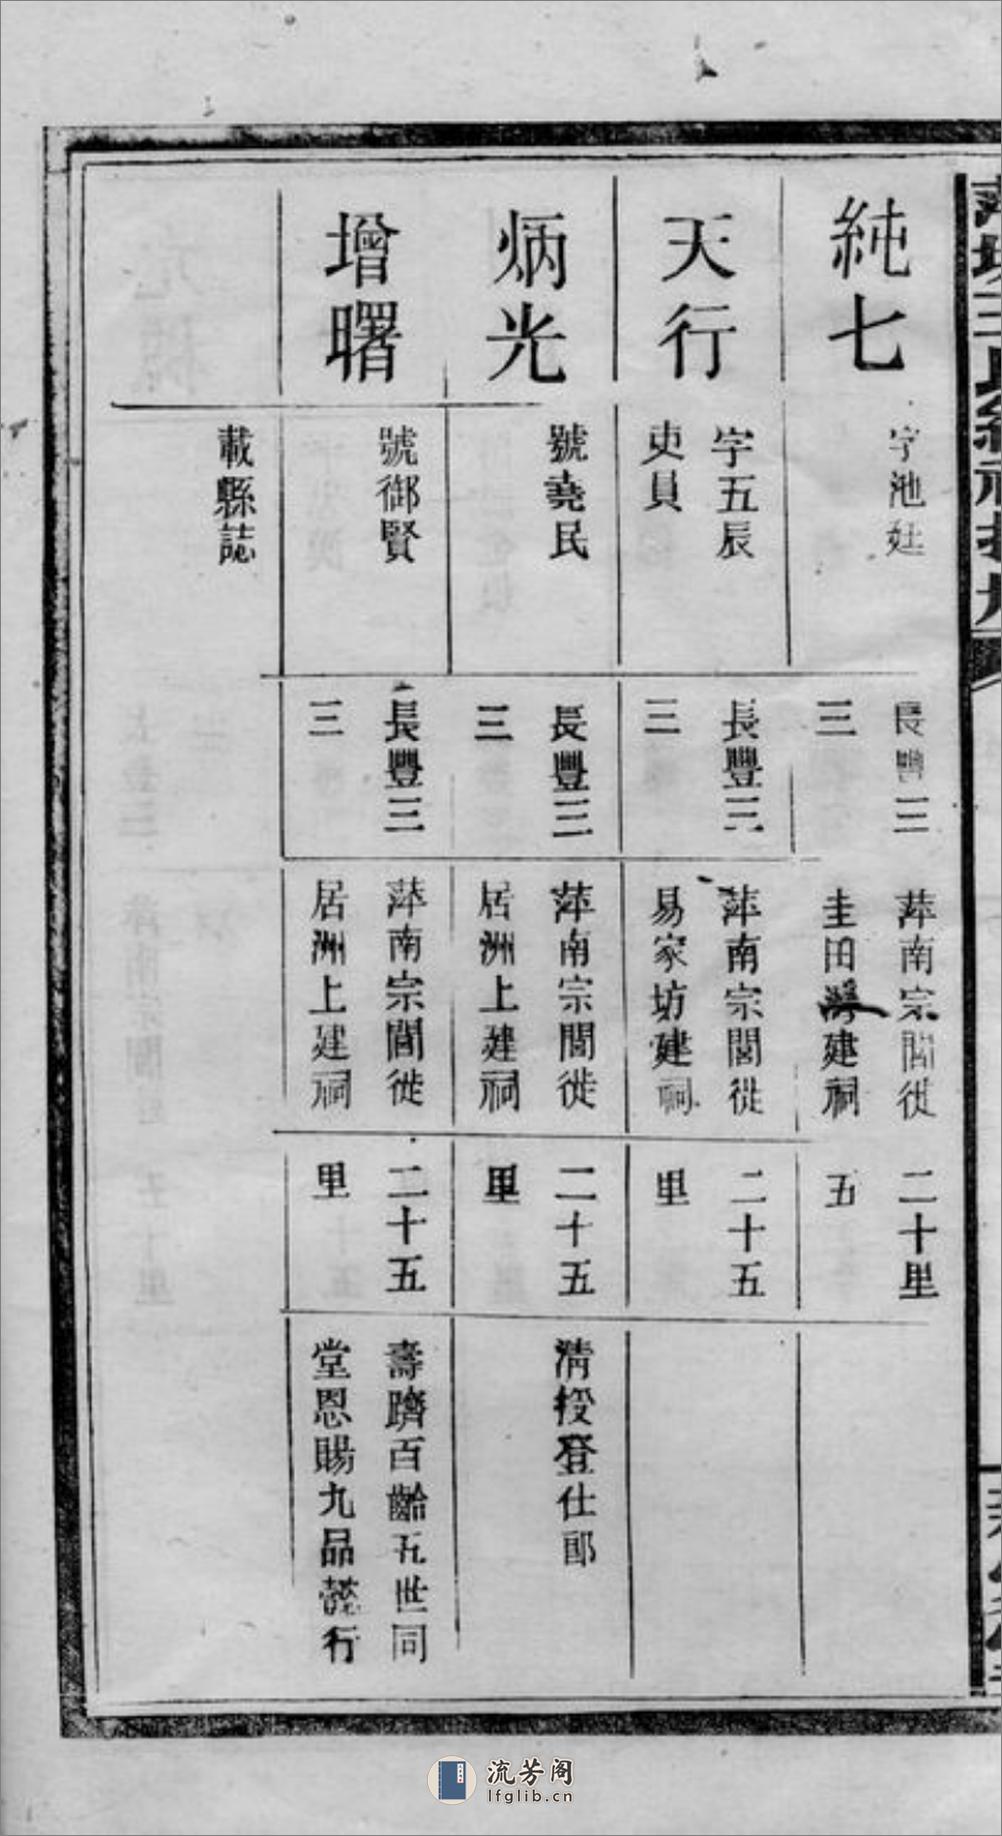 純七
字池廷
長豐三
三
萍南宗閭徙
圭田灣建祠
二十里
五
天行
字五辰
吏員
長豐三
三
萍南宗閭徙
易家坊建祠
二十五
里
炳光
號堯民
長豐三
三
萍南宗閭徙
居洲上建祠
二十五
里
清授登仕郎
增曙
號御賢
長豐三
三
萍南宗閭徙
居洲上建祠
二十五
里
壽躋百齡五世同
堂恩賜九品懿行
載縣誌
流芳阁
lfglib.cn